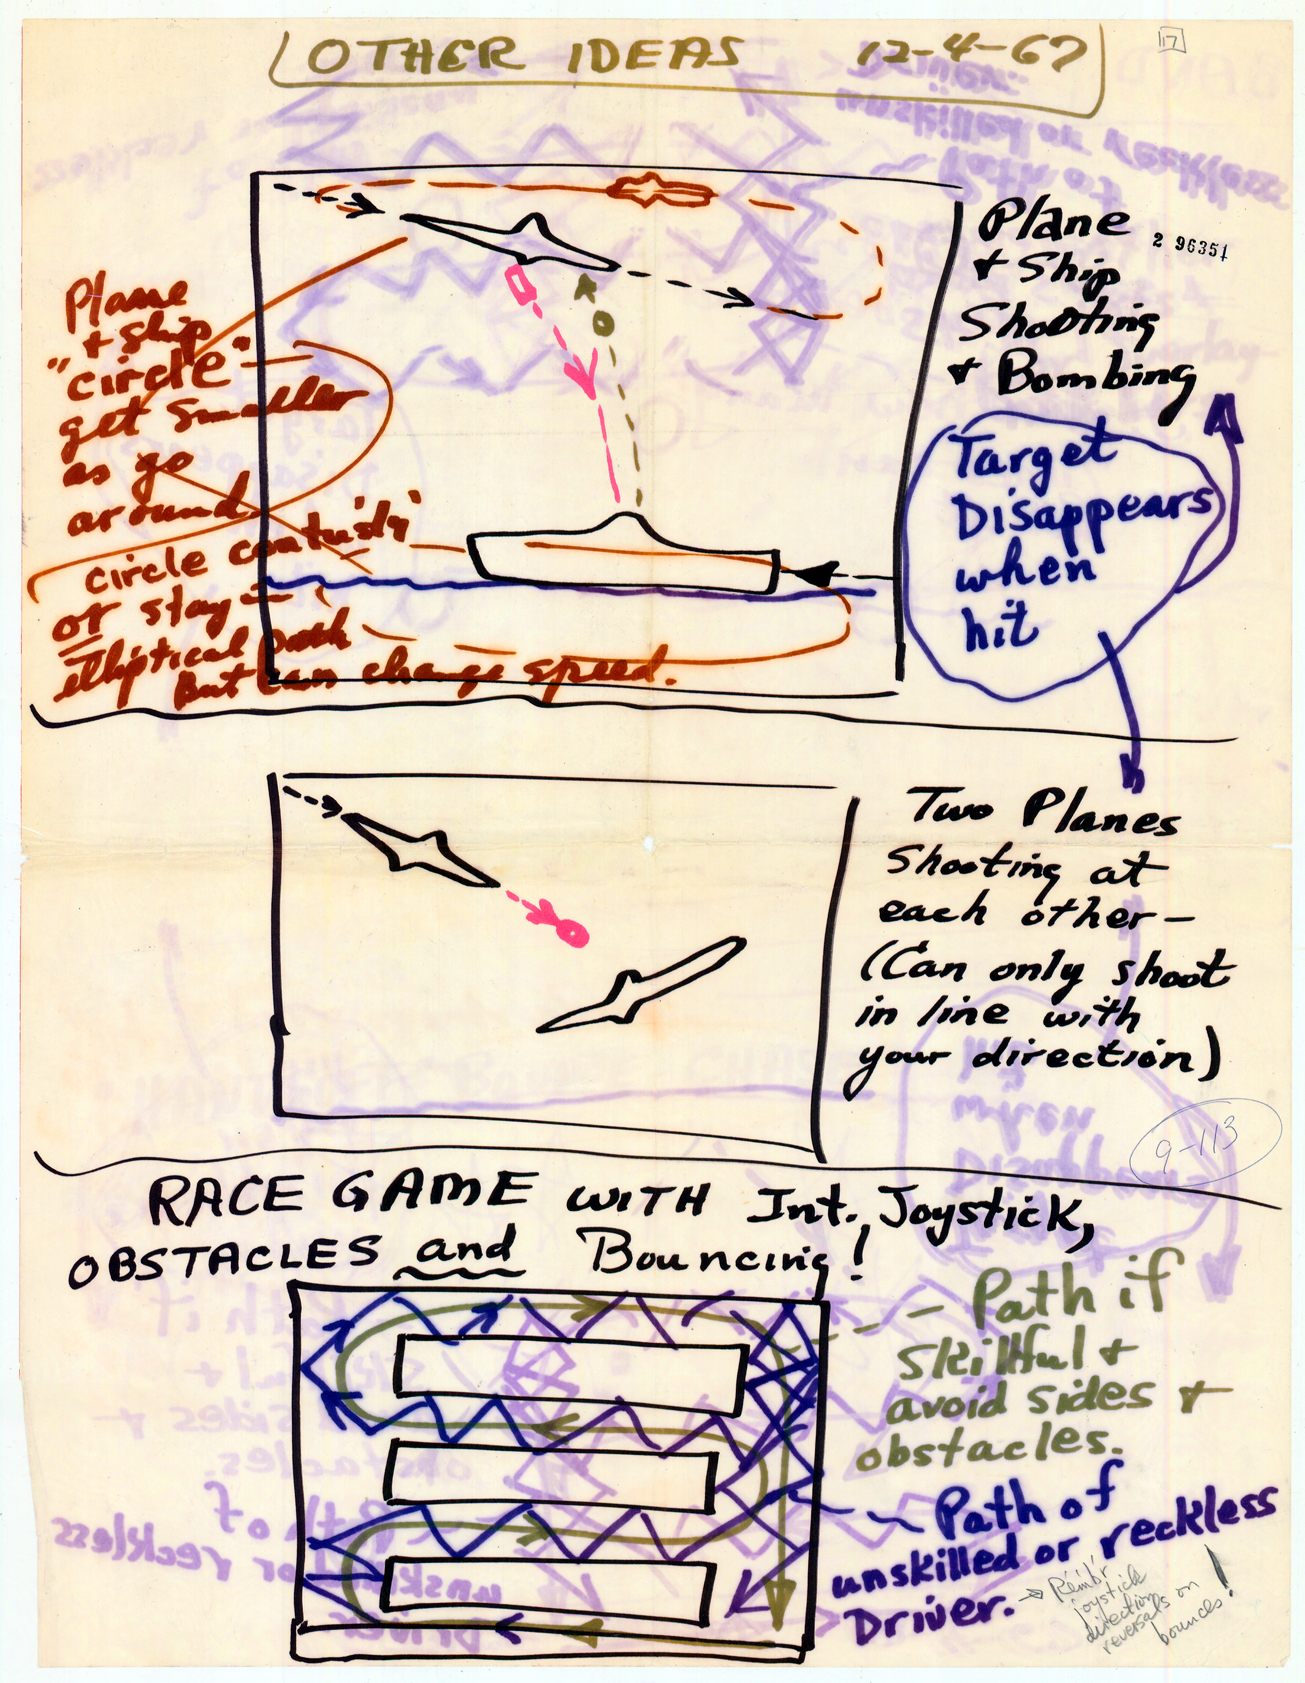 OTHER IDEAS 12-4-67
17
Plane
+ Ship
Shooting
+ Bombing
2 96351
Plane
+ Ship
"circle"
get smaller
as go
around
circle
or stay
elliptical path
But can change speed.
Target
Disappears
when
hit
Two Planes
Shooting at
each other —
(Can only shoot
in line with
your direction)
9-113
RACE GAME WITH Int. Joystick,
OBSTACLES and Bouncing!
— Path if
skillful +
avoid sides +
obstacles.
Path of
unskilled or reckless
Driver.
→ Remb'r
joystick
direction
reversals on
bounces!